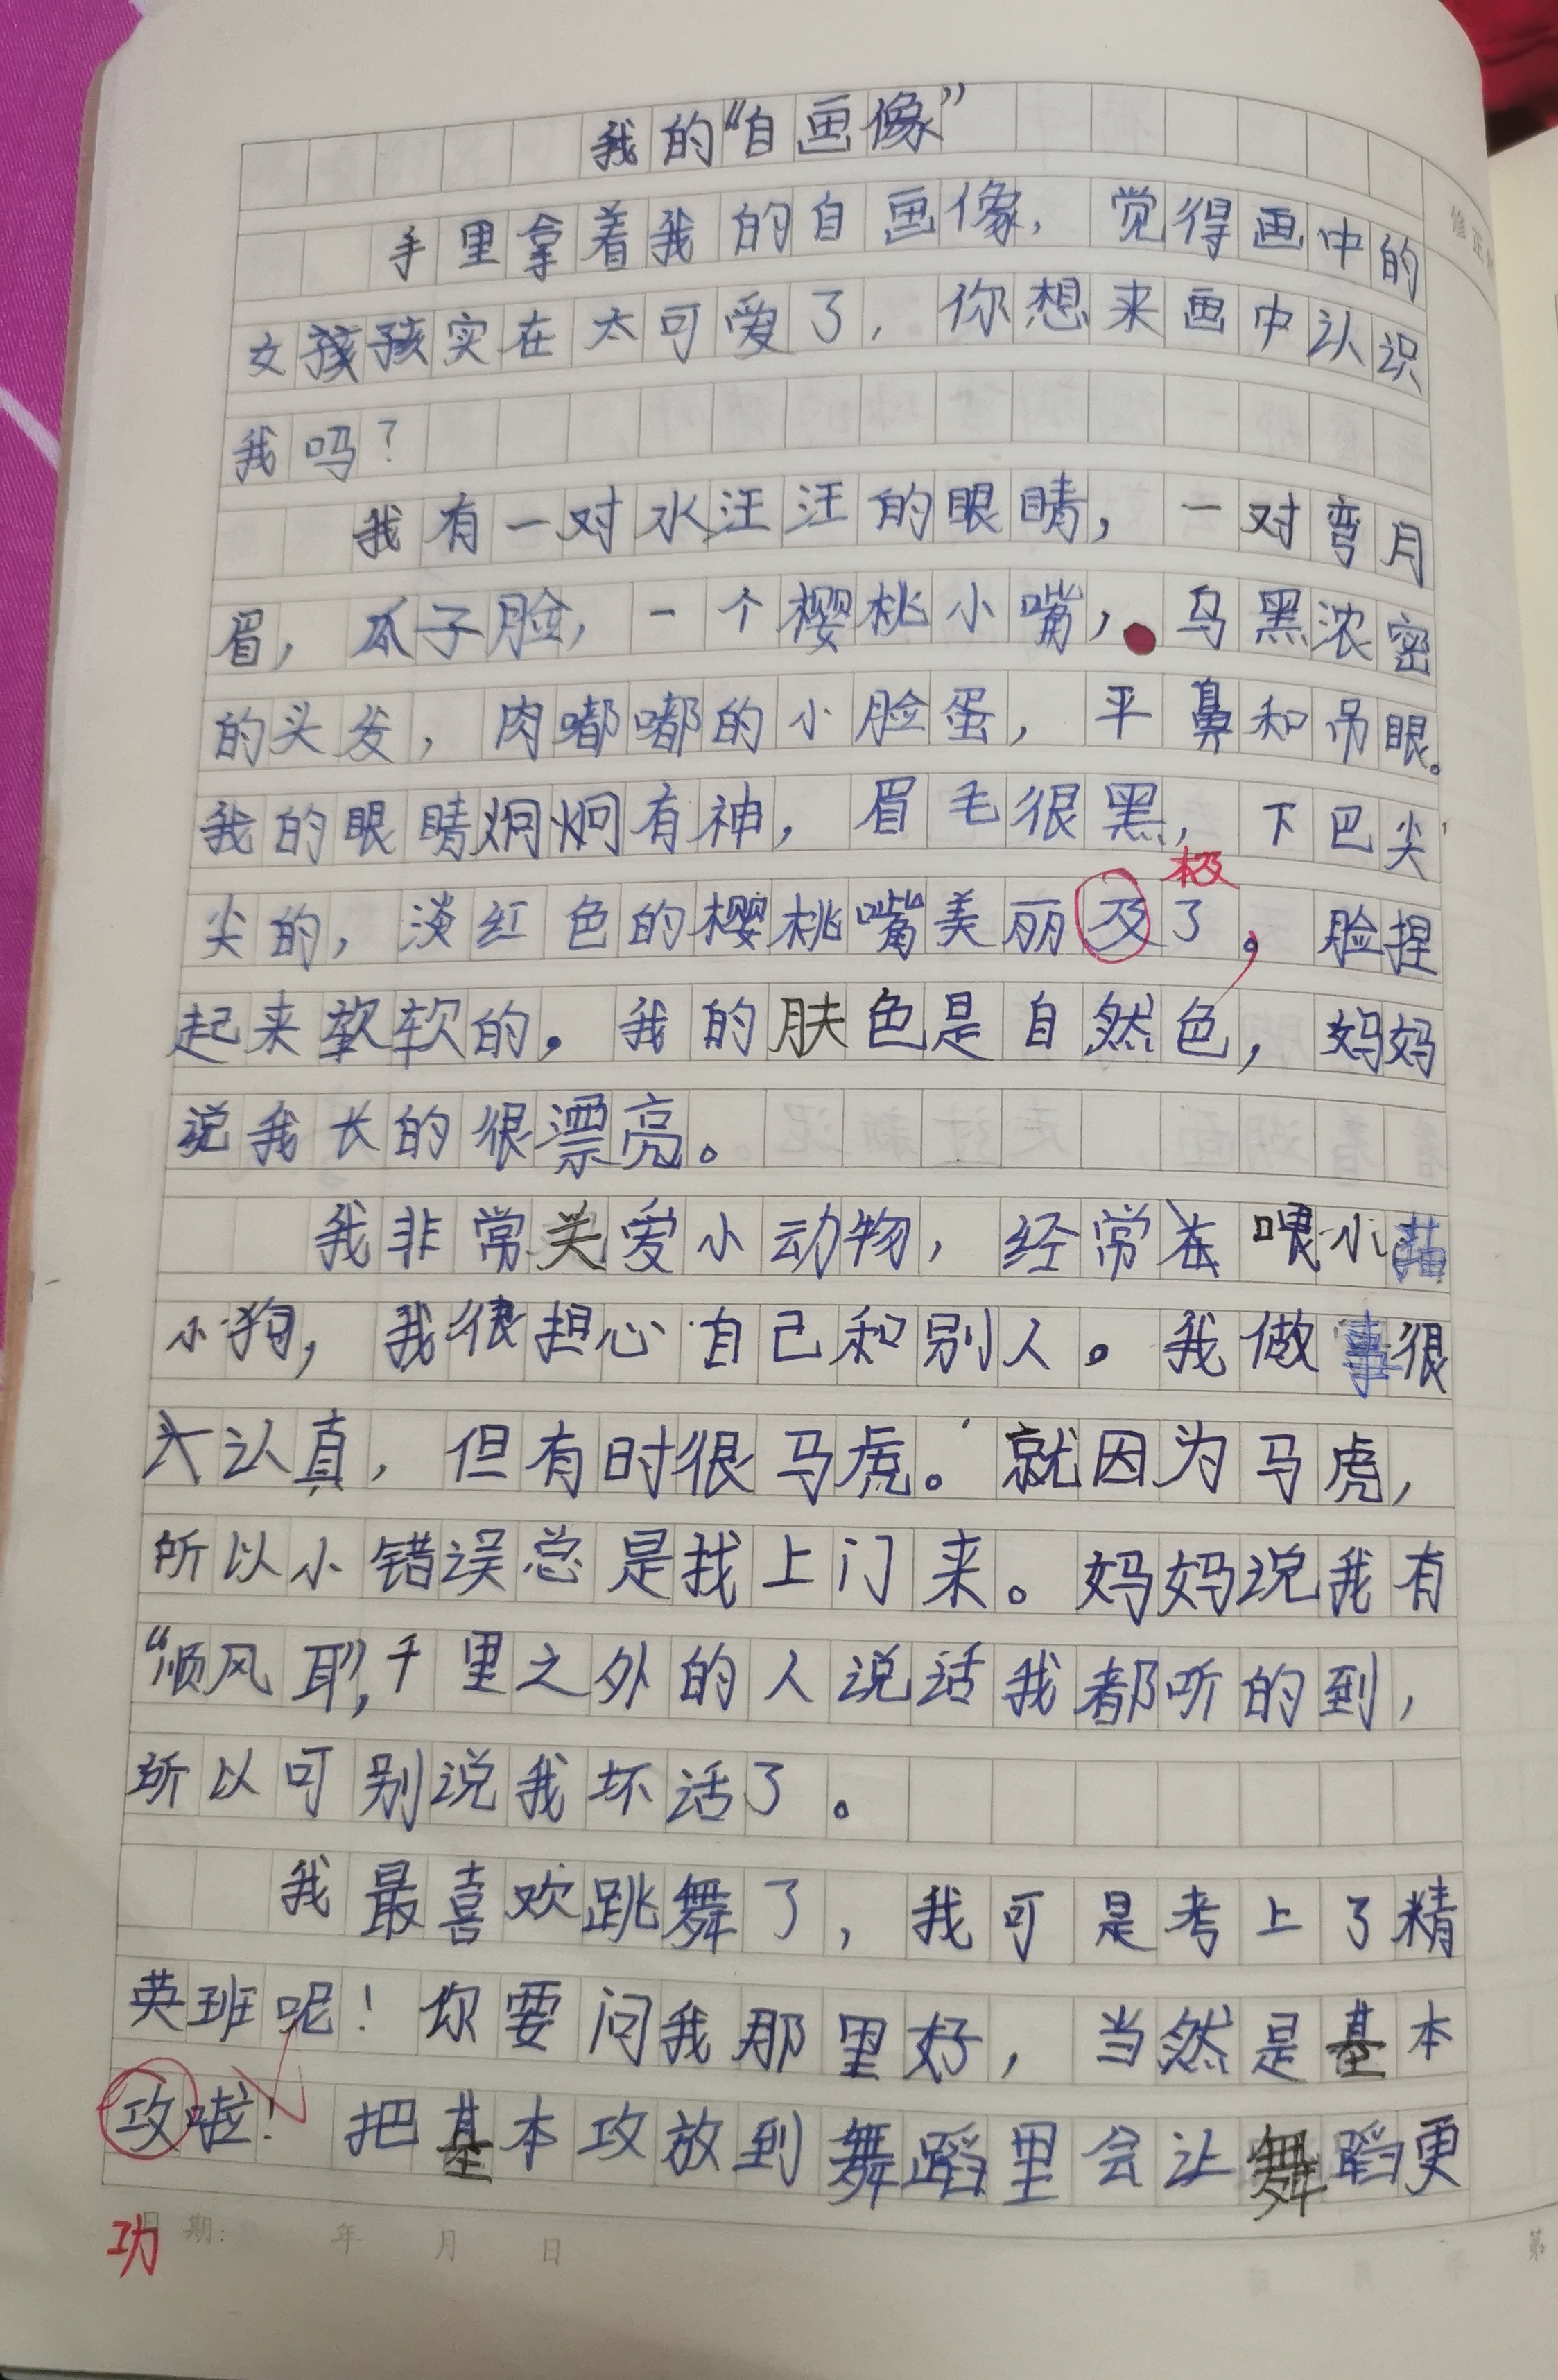 我的“自画像”
手里拿着我的自画像，觉得画中的
女孩孩实在太可爱了，你想来画中认识
我吗？
我有一对水汪汪的眼睛，一对弯月
眉，瓜子脸，一个樱桃小嘴，乌黑浓密
的头发，肉嘟嘟的小脸蛋，平鼻和吊眼。
我的眼睛炯炯有神，眉毛很黑，下巴尖
极
尖的，淡红色的樱桃嘴美丽及了，脸捏
起来软软的。我的肤色是自然色，妈妈
说我长的很漂亮。
我非常关爱小动物，经常在喂小猫
小狗，我很担心自己和别人。我做事很
大认真，但有时很马虎。就因为马虎，
所以小错误总是找上门来。妈妈说我有
“顺风耳”，千里之外的人说话我都听的到，
所以可别说我坏话了。
我最喜欢跳舞了，我可是考上了精
英班呢！你要问我那里好，当然是基本
攻啦！把基本攻放到舞蹈里会让舞蹈更
功
日期： 年 月 日